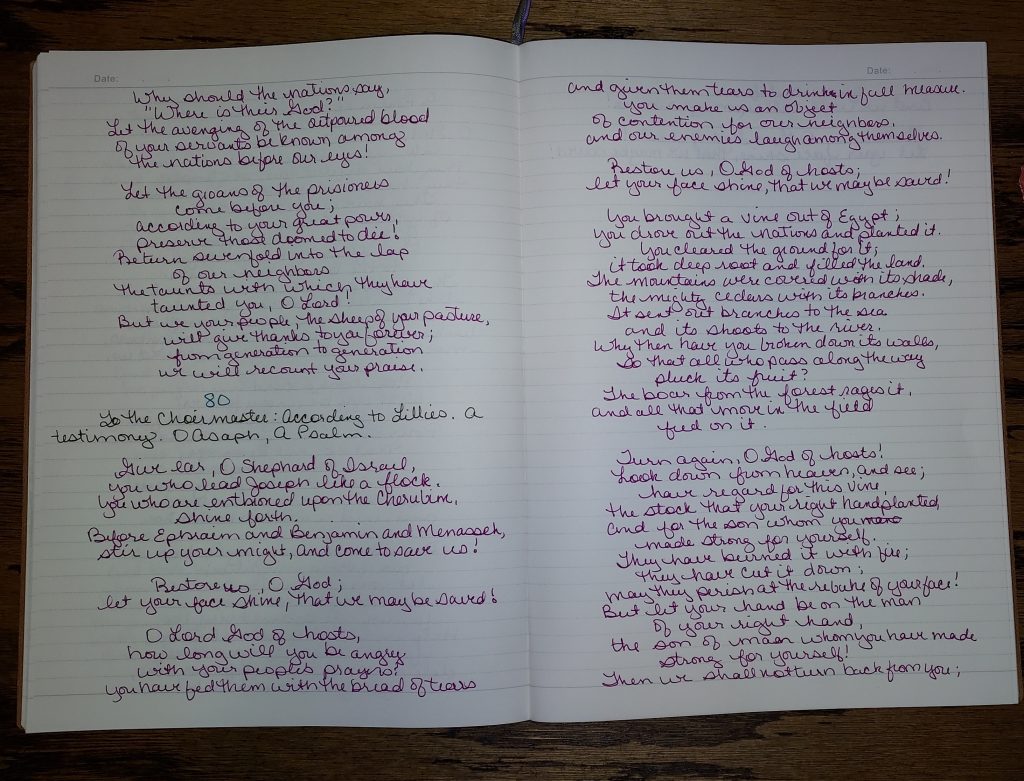 Date:
Why should the nations say,
"Where is their God?"
Let the avenging of the outpoured blood
of your servants be known among
the nations before our eyes!
Let the groans of the prisioners
come before you;
according to your great power,
preserve those doomed to die!
Return sevenfold into the lap
of our neighbors
the taunts with which they have
taunted you, O Lord!
But we your people, the sheep of your pasture,
will give thanks to you forever;
from generation to generation
we will recount your praise.
80
To the Choirmaster: According to Lillies. A
testimony. O Asaph, A Psalm.
Give ear, O Shephard of Israel,
you who lead Joseph like a flock.
You who are enthroned upon the Cherubim,
shine forth.
Before Ephraim and Benjamin and Menasseh,
stir up your might, and come to save us!
Restore us, O God;
let your face shine, that we may be saved!
O Lord God of hosts,
how long will you be angry
with your people's prayers?
you have fed them with the bread of tears
Date:
and given them tears to drink in full measure.
You make us an object
of contention for our neighbors,
and our enemies laugh among themselves.
Restore us, O God of hosts;
let your face shine, that we may be saved!
You brought a vine out of Egypt;
you drove out the nations and planted it.
You cleared the ground for it;
it took deep root and filled the land.
The mountains were covered with its shade,
the mighty ceders with its branches.
It sent out branches to the sea
and its shoots to the river.
Why then have you broken down its walls,
so that all who pass along the way
pluck its fruit?
The boar from the forest rages it,
and all that move in the field
feed on it.
Turn again, O God of hosts!
Look down from heaven, and see;
have regard for this vine,
the stock that your right hand planted,
and for the son whom you
made strong for yourself.
They have burned it with fire;
they have cut it down;
may they perish at the rebuke of your face!
But let your hand be on the man
of your right hand,
the son of man whom you have made
strong for yourself!
Then we shall not turn back from you;